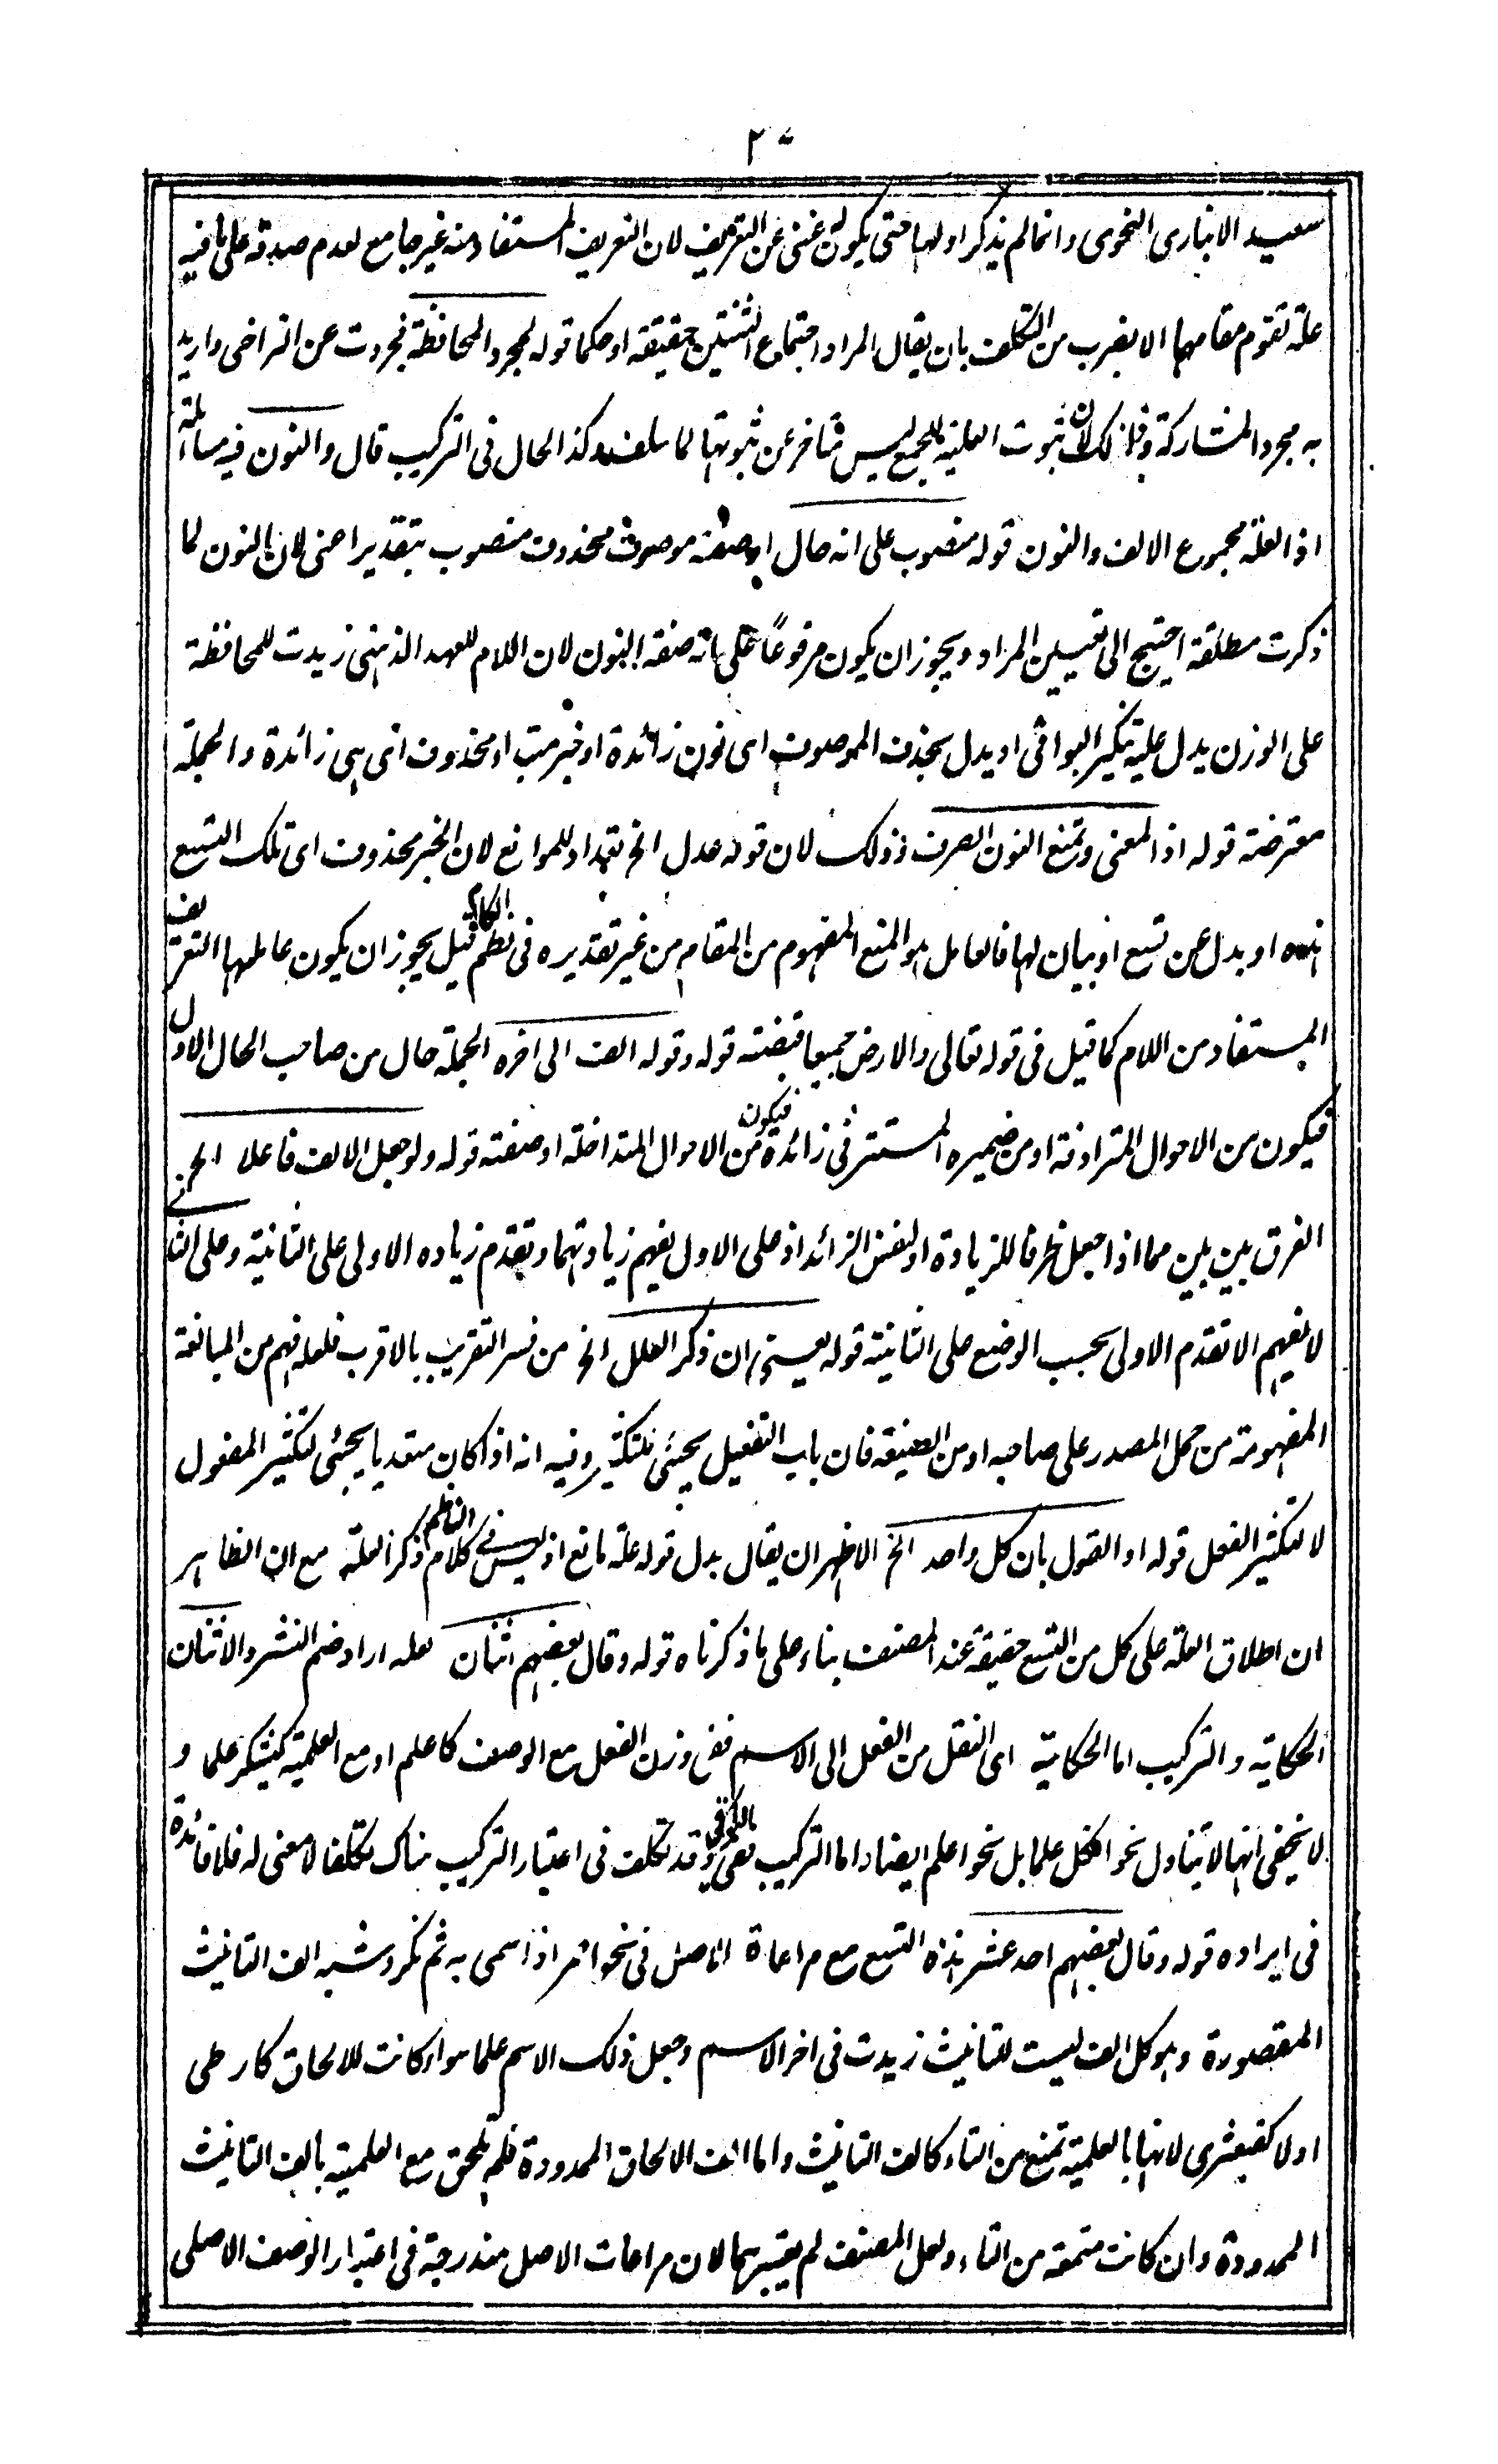 ٢٠
سعيد الانبارى النحوى وانما لم يذكر اولها حتى يكون له غنى عن التعريف لان التعريف المستفاد منه غير جامع لعدم صدقه على ما فيه
علة تقوم مقامهما الا بضرب من التكلف بان يقال المراد اجتماع اثنتين حقيقة او حكما قوله لمجرد المحافظة فجردت عن التراخى واريد
به مجرد المشاركة وذلك لان ثبوت العلية للجمع ليس متاخر عن ثبوتها لما سلف وكذا الحال فى التركيب قال والنون فيه مساهلة
اذ العلة مجموع الالف والنون قوله منصوب على انه حال او صفة موصوف محذوف منصوب بتقدير اعنى لان النون لما
ذكرت مطلقة احتيج الى تعيين المراد ويجوز ان يكون مرفوعًا على انه صفة النون لان اللام للعهد الذهنى زيدت للمحافظة
على الوزن يدل عليه تنكير البواقى او بدل بحذف الموصوف اى نون زائدة او خبر مبتدا محذوف اى هى زائدة والجملة
معترضة قوله اذ المعنى وتمنع النون الصرف وذلك لان قوله عدل الخ تعداد للموانع لان الخبر محذوف اى تلك التسع
هذه او بدل عن تسع او بيان لها فالعامل هو المنع المفهوم من المقام من غير تقديره فى نظم الكلام قيل يجوز ان يكون عاملها التعريف
المستفاد من اللام كما قيل فى قوله تعالى والارض جميعا قبضته قوله وقوله الف الى اخره الجملة حال من صاحب الحال الاول
فيكون من الاحوال المترادفة او من ضميره المستتر فى زائدة فيكون من الاحوال المتداخلة او صفة قوله ولو جعل الالف فاعلا الخ
الفرق بين بين مما اذا جعل ظرفا للزيادة او لنفس الزائد اذ على الاول يفهم زيادتهما وتقدم زياده الاولى على الثانية وعلى الثانى
لا يفهم الا تقدم الاولى بحسب الوضع على الثانية قوله يعنى ان ذكر العلل الخ من فسر التقريب بالاقرب فلعله فهم من المبالغة
المفهومة من حمل المصدر على صاحبه او من الصيغة فان باب التفعيل يجئى للتكثير وفيه انه اذا كان متعديا يجئى لتكثير المفعول
لا لتكثير الفعل قوله او القول بان كل واحد الخ الاظهر ان يقال بدل قوله علة مانع اذ ليس فى كلام الناظم ذكر العلة مع ان الظاهر
ان اطلاق العلة على كل من التسع حقيقة عند المصنف بناء على ما ذكرناه قوله وقال بعضهم اثنان لعله اراد ضم النشر والاثنان
الحكاية والتركيب اما الحكاية اى النقل من الفعل الى الاسم ففى وزن الفعل مع الوصف كاعلم او مع العلمية كيشكر علما و
لا يخفى انها لا يتناول نحو افكل علما بل نحو اعلم ايضا واما التركيب ففى البواقى وقد تكلف فى اعتبار التركيب هناك تكلفا لا معنى له فلا فائدة
فى ايراده قوله وقال بعضهم احد عشر هذه التسع مع مراعاة الاصل فى نحو احمر اذا سمى به ثم نكر وشبه الف التانيث
المقصورة وهو كل الف ليست للتانيث زيدت فى اخر الاسم وجعل ذلك الاسم علما سواء كانت للالحاق كارطى
او لا كقبعثرى لانها بالعلمية تمنع من التاء كالف التانيث واما الف الالحاق الممدودة فلم يلحق مع العلمية بالف التانيث
الممدودة وان كانت متمعة من التاء ولعل المصنف لم يعتبرهما لان مراعات الاصل مندرجة فى اعتبار الوصف الاصلى